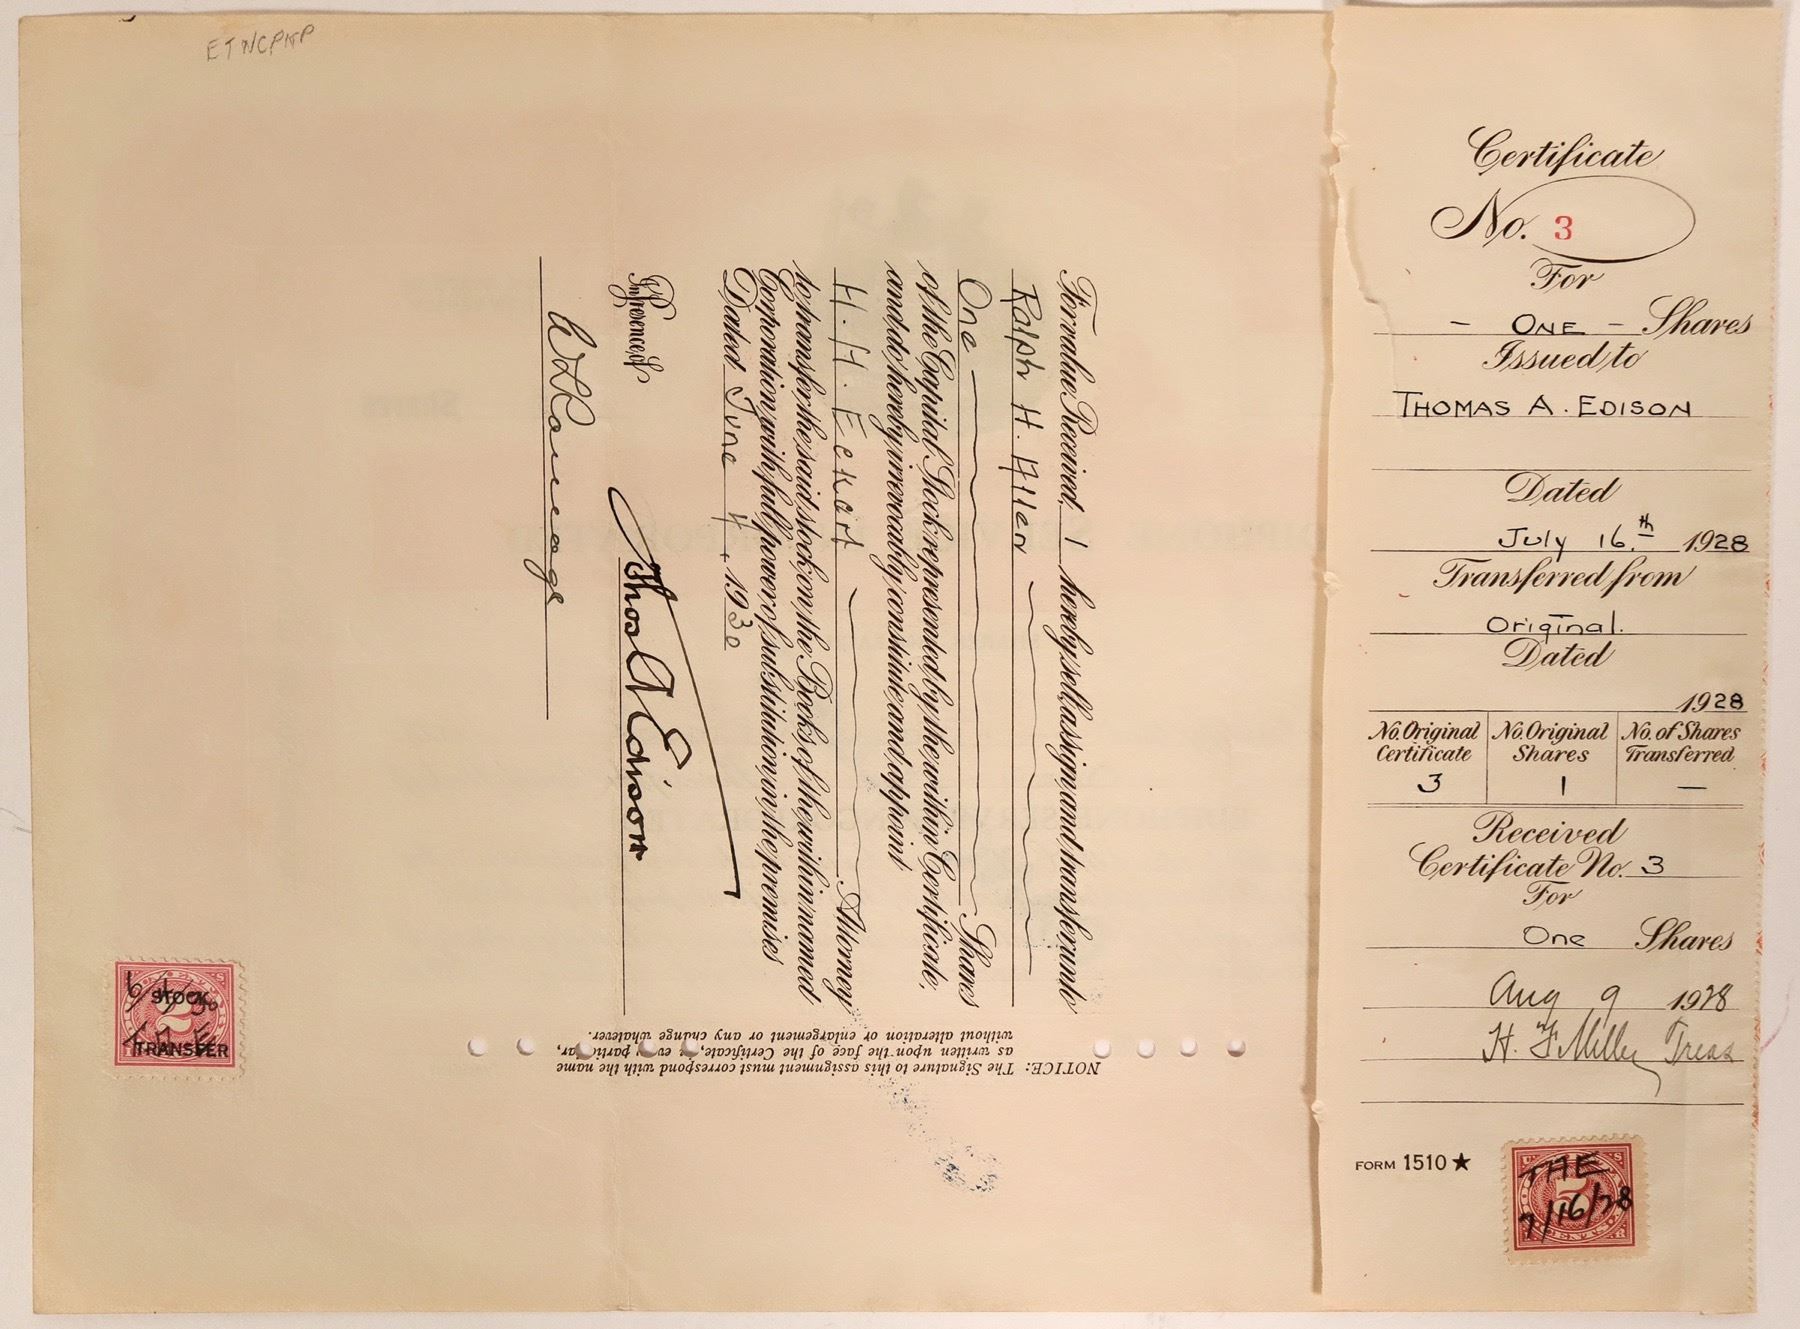 ETNCPKP
For value Received, I hereby sell, assign and transfer unto
Ralph H. Allen
One Shares
of the Capital Stock represented by the within Certificate,
and do hereby irrevocably constitute and appoint
H. H. Eckert Attorney
to transfer the said stock on the Books of the within named
Corporation with full power of substitution in the premises
Dated June 4, 1930
Thos A Edison
In Presence of
NOTICE: The Signature to this assignment must correspond with the name
as written upon the face of the Certificate, in every particular,
without alteration or enlargement or any change whatever.
STOCK
2
TRANSFER
Certificate
No. 3
For
- ONE - Shares
Issued to
THOMAS A. EDISON
Dated
July 16.th 1928
Transferred from
Original.
Dated
1928
No. Original Certificate No. Original Shares No. of Shares Transferred
3 1 —
Received
Certificate No. 3
For
One Shares
Aug 9 1928
H. F. Miller Treas
FORM 1510 ★
THE
7/16/28